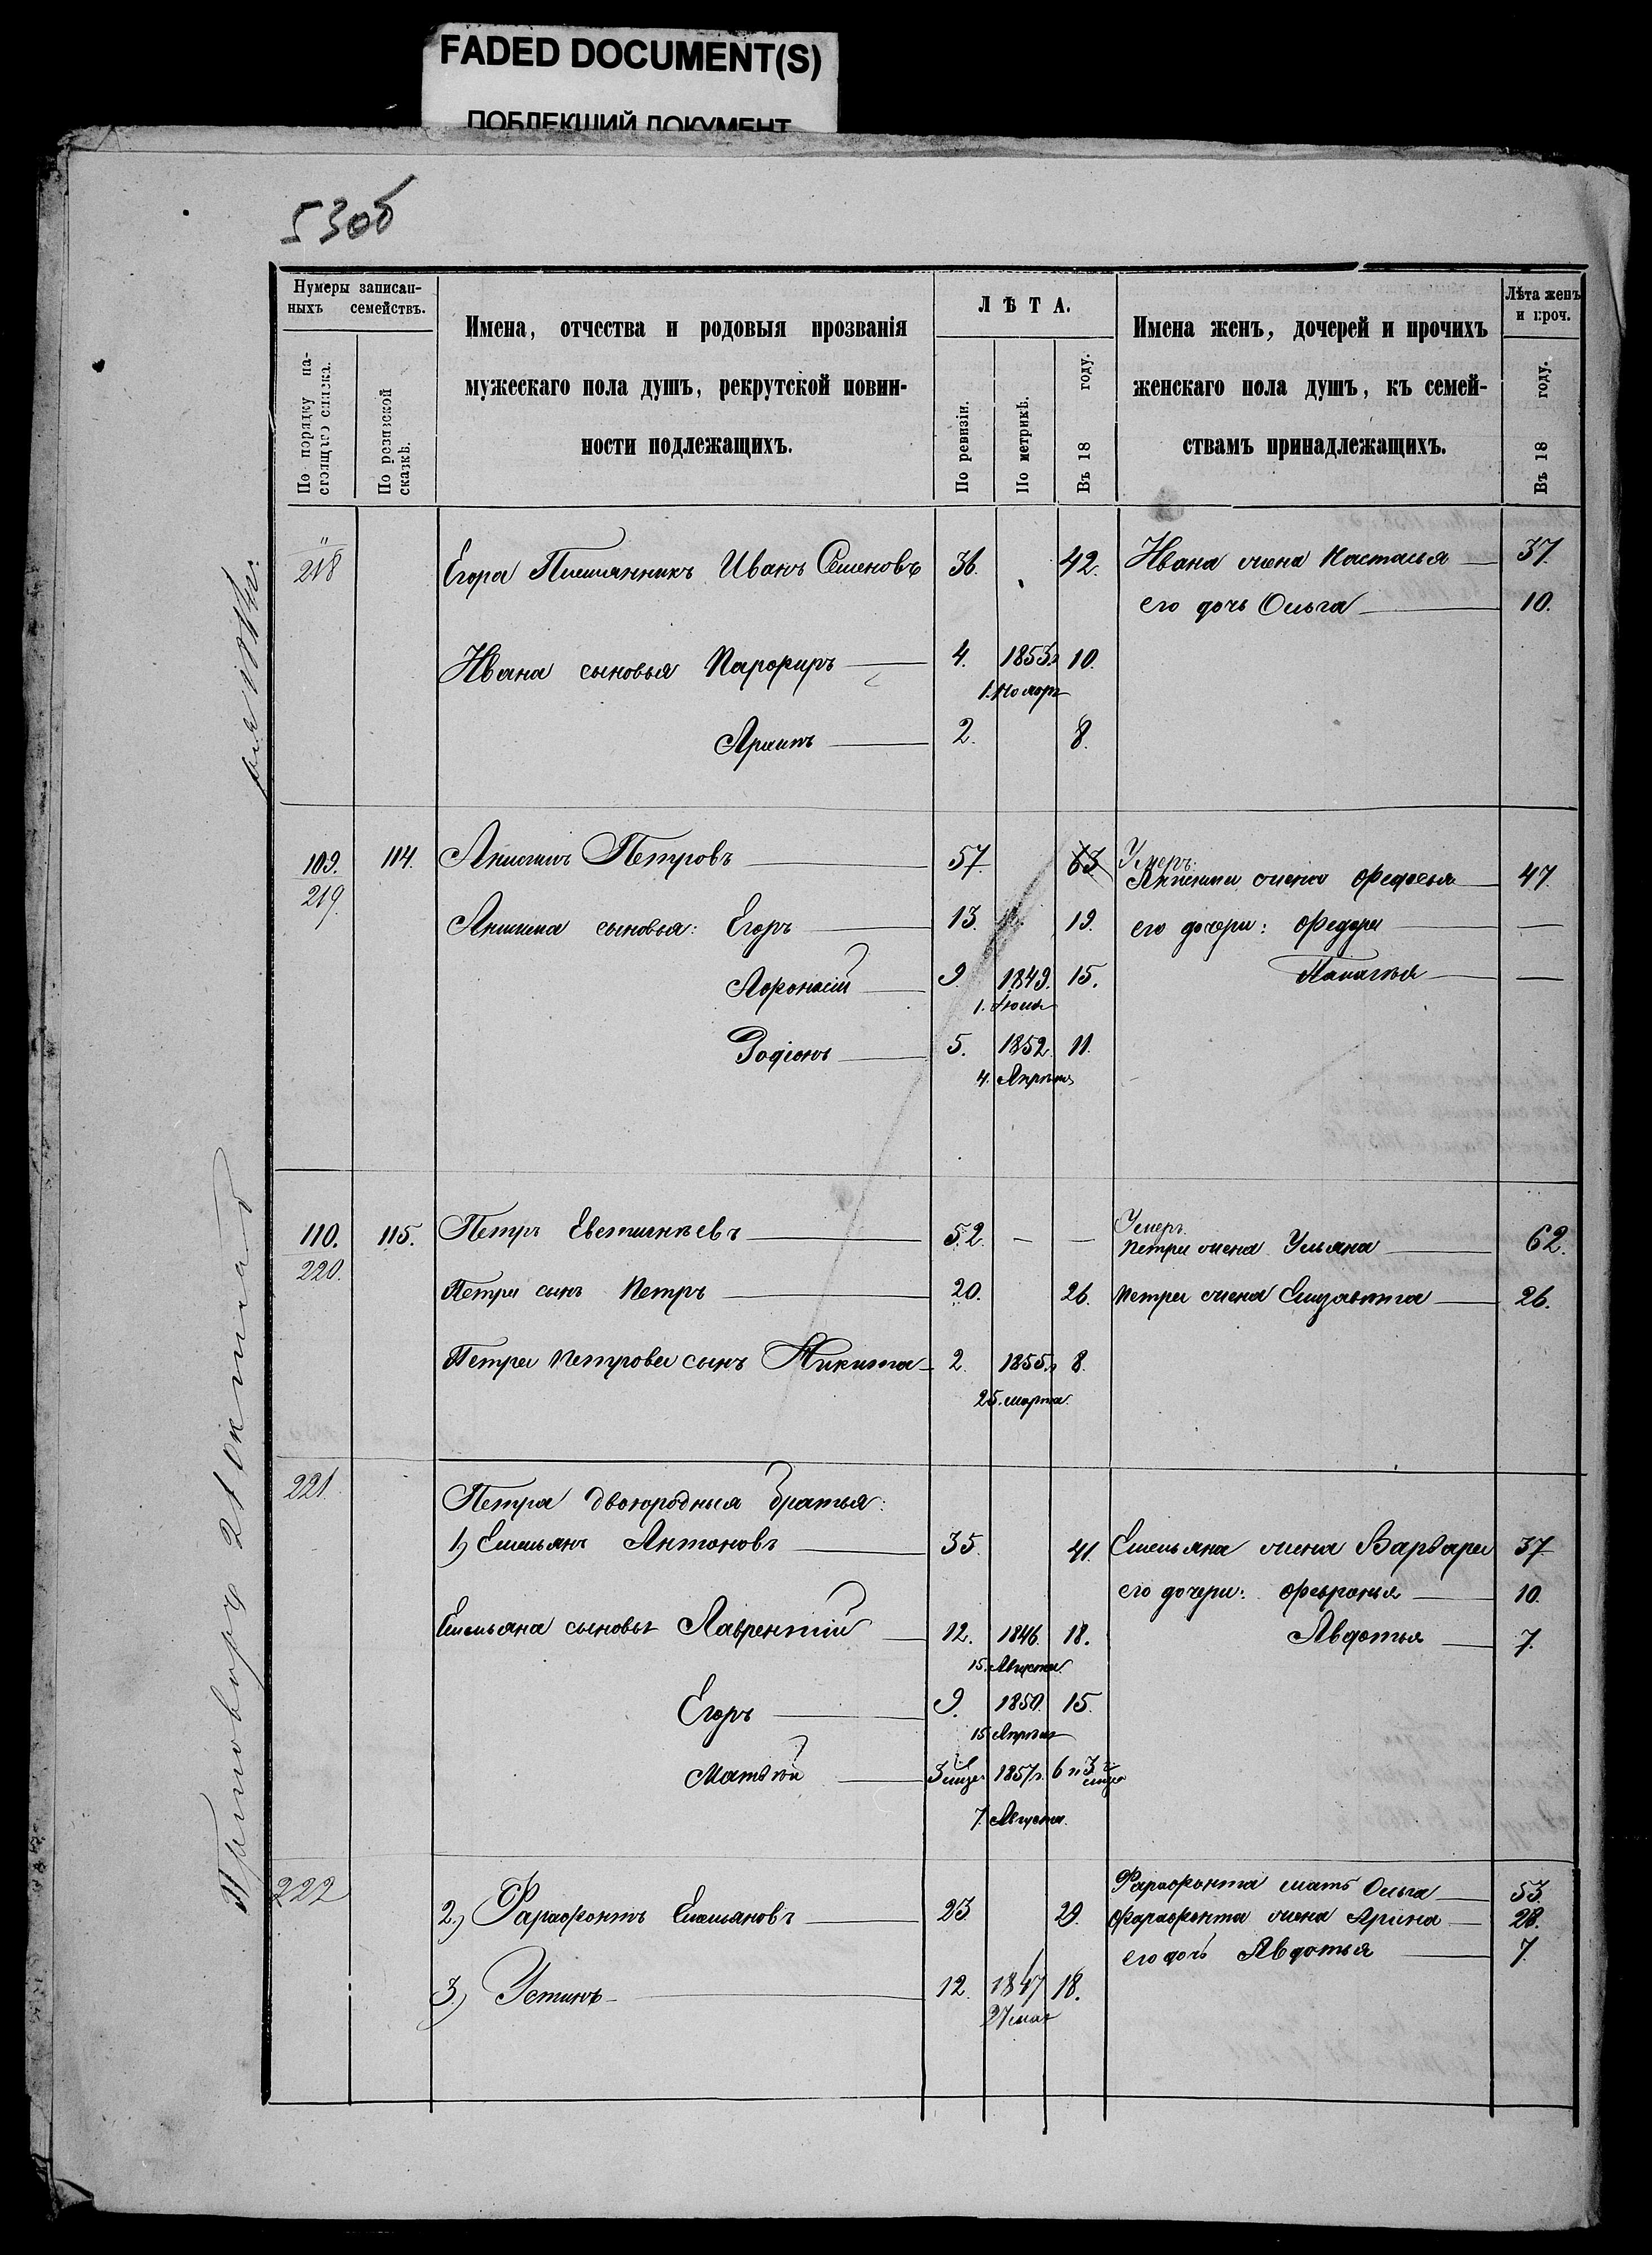 FADED DOCUMENT(S)
ПОБЛЕКШИЙ ДОКУМЕНТ
53об
Нумеры записан-
ныхъ семействъ.
По порядку на-
стоящаго списка.
По ревизской
сказкѣ.
Имена, отчества и родовыя прозванія
мужескаго пола душъ, рекрутской повин-
ности подлежащихъ.
ЛѢТА.
По ревизіи.
По метрикѣ.
Въ 18 году.
Имена женъ, дочерей и прочихъ
женскаго пола душъ, къ семей-
ствамъ принадлежащихъ.
Лѣта женъ
и проч.
Въ 18 году.
"
218 Егора Племянникъ Иванъ Семеновъ 36. 42. Ивана жена Настасья 37.
его дочь Ольга 10.
Ивана сыновья Парфиръ 4. 1853 10.
1. Ноябр
Архипъ 2. 8.
109. 114. Анисимъ Петровъ 57. 63 Умеръ.
219. Анисима жена Федосья 47.
Анисима сыновья: Егоръ 13. 19. его дочери: Федора —
Афонасій 9 1849. 15. —
1. Іюля
Родіонъ 5. 1852. 11.
4. Апрѣля
110. 115. Петръ Евстигнѣевъ 52. — — Умеръ.
220. Петра жена Ульяна 62.
Петра сынъ Петръ 20. 26. Петра жена Елизавѣта 26.
Петра Петрова сынъ Никита 2. 1855 8.
25. марта.
221. Петра двоюродныя братья:
1) Емельянъ Антоновъ 35. 41. Емельяна жена Варвара 37.
его дочери: Февронья 10.
Емельяна сыновья Лаврентій 12. 1846. 18. Авдотья 7.
15. Августа
Егоръ 9. 1850. 15.
15 Апрѣля
Матвѣй 3 мѣсе 1857 6 и 3 мѣс
7. Августа.
222 Фарафонта мать Ольга 53.
2) Фарафонтъ Емельяновъ 23. 29. Фарафонта жена Арина 28.
его дочь Авдотья 7.
3) Устинъ 12. 1847 18.
27 мая
Приговоръ 21 Октября